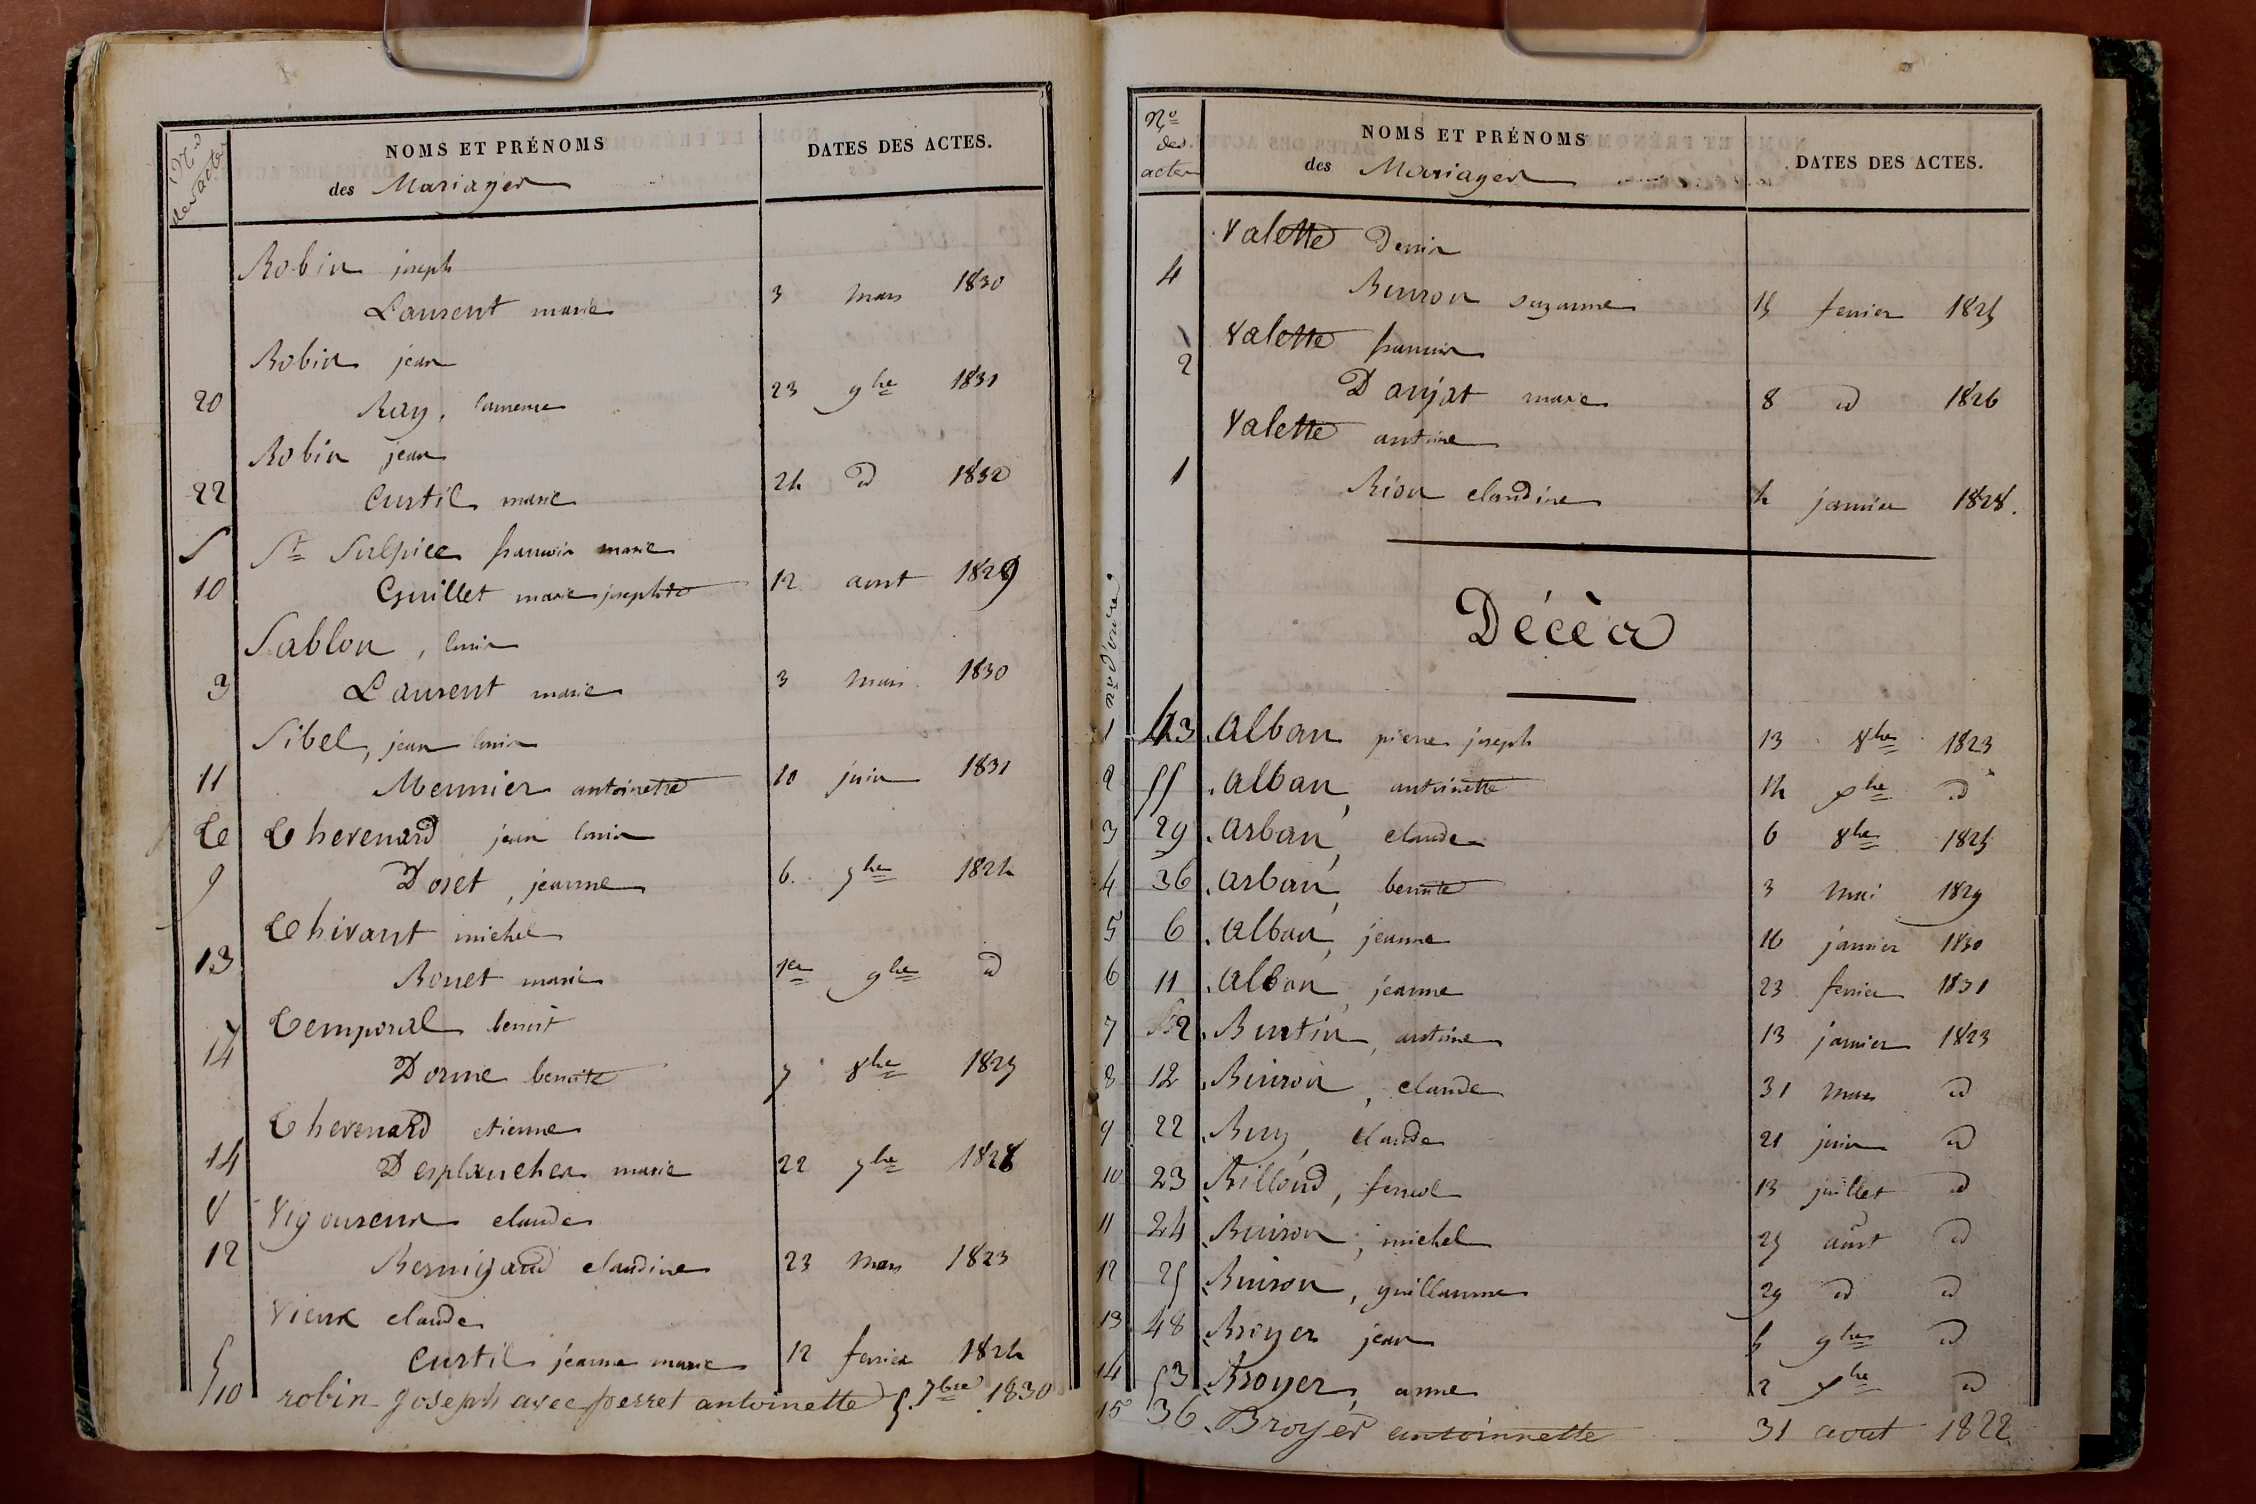 Nos des actes
NOMS ET PRÉNOMS
des Mariages
DATES DES ACTES.
Robin joseph
Laurent marie 3 mars 1830
Robin jean
20 Ray, laurence 23 9bre 1831
Robin jean
22 Curtil marie 24 d 1832
S St Sulpice francois marie
10 Guillet marie josephte 12 aout 1829
Sablon, louis
3 Laurent marie 3 mars 1830
Sibel, jean louis
11 Meunier antoinette 10 juin 1831
T Thevenard jean louis
9 Doset, jeanne 6 7bre 1824
Thivant michel
13 Bonet marie 1er 9bre d
Temporal benoit
14 Dorme benoite 7 8bre 1825
Thevenard etienne
14 Desplanches marie 22 7bre 1828
V Vigoureux claude
12 Bernigaud claudine 23 mars 1823
Vieux claude
5 Curtil jeanne marie 12 fevrier 1824
10 robin Joseph avec perret antoinette 5. 7bre 1830
No des actes
NOMS ET PRÉNOMS
des Mariages
DATES DES ACTES.
Valette Denis
4 Buiron suzanne 15 fevrier 1825
Valette francois
2 Danjat marie 8 d 1826
Valette antoine
1 Rion claudine 4 janvier 1828.
Décès
no d'ordre
1 43 Alban pierre joseph 13 8bre 1823
2 55 Alban, antoinette 14 xbre d
3 29 Arban, claude 6 8bre 1825
4 36 Arban, benoite 3 mai 1829
5 6 Alban, jeanne 16 janvier 1830
6 11 Alban, jeanne 23 fevrier 1831
7 2 Burtin, antoine 13 janvier 1823
8 12 Buiron, claude 31 mars d
9 22 Buy, claude 21 juin d
10 23 Billoud, ferreol 13 juillet d
11 24 Buiron, michel 25 aout d
12 25 Buiron, guillaume 29 d d
13 48 Broyer jean 5 9bre d
14 53 Broyer, anne 2 xbre d
15 36 Broyer antoinnette 31 aout 1822